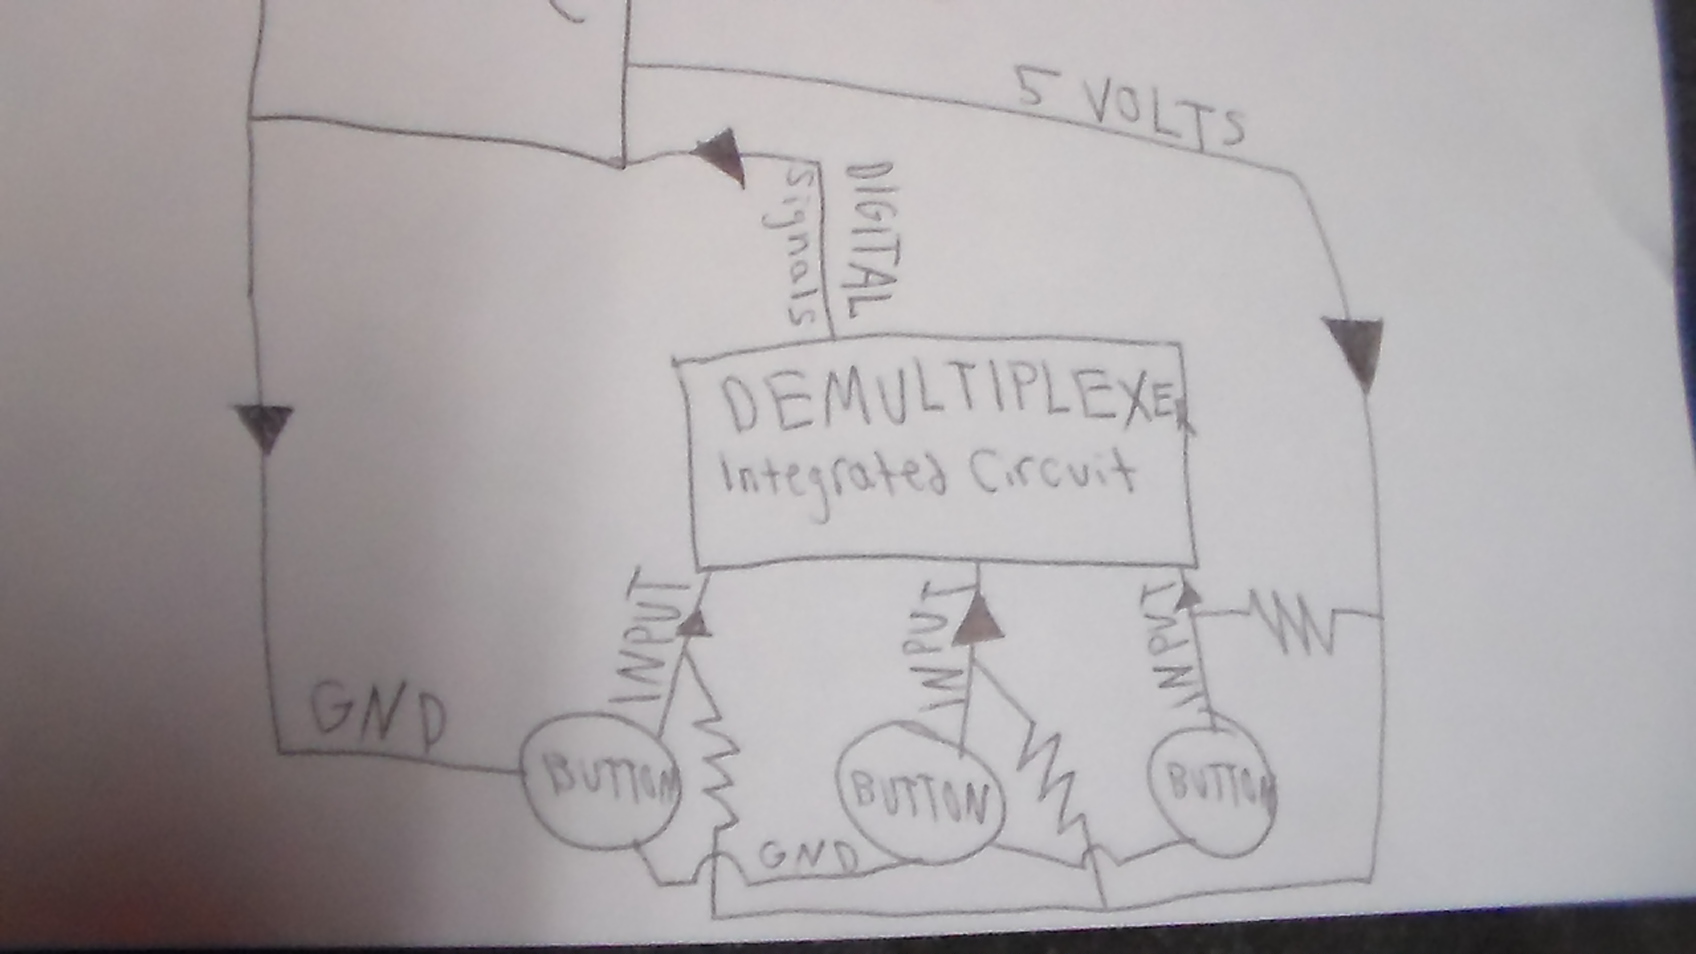 5 VOLTS
DIGITAL
Signals
DEMULTIPLEXER
Integrated Circuit
INPUT
INPUT
INPUT
GND
BUTTON
BUTTON
BUTTON
GND